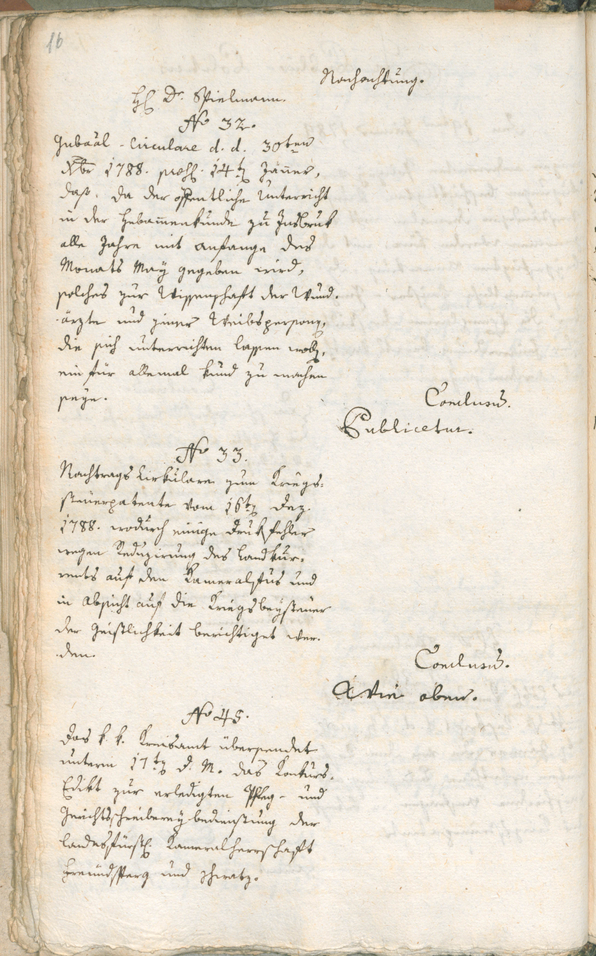 16
Nachachtung.
H. Dr. Spielmann.
No 32.
Gubäal-Circulare d. d. 30ten
Xbr 1788. präs. 14t Jänner,
daß, da der öffentliche Unterricht
in der Hebammenkunde zu Insbruk
alle Jahre mit Anfange des
Monats May gegeben wird,
solches zur Wissenschaft der Wund-
ärzte und jener Weibspersonen,
die sich unterrichten lassen wollen,
ein für allemal kund zu machen
seye.
Conclusum.
Publicetur.
No 33.
Nachtrags Cirkulare zum Kriegs-
steuerpatente vom 16t Dez.
1788. wodurch einige Drukfehler
wegen Reduzirung des Landkur-
rents auf den Kameralfus und
in Absicht auf die Kriegsbeysteuer
der Geistlichkeit berichtiget wer-
den.
Conclusum.
Wie oben.
No 45.
Das k. k. Kreisamt übersendet
unterm 17t d. M. das Konkurs-
Edikt zur erledigten Pfleg- und
Gerichtsschreiberey-bedienstung der
landesfürstl. Kameralherrschaft
Freundsperg und Schwatz.